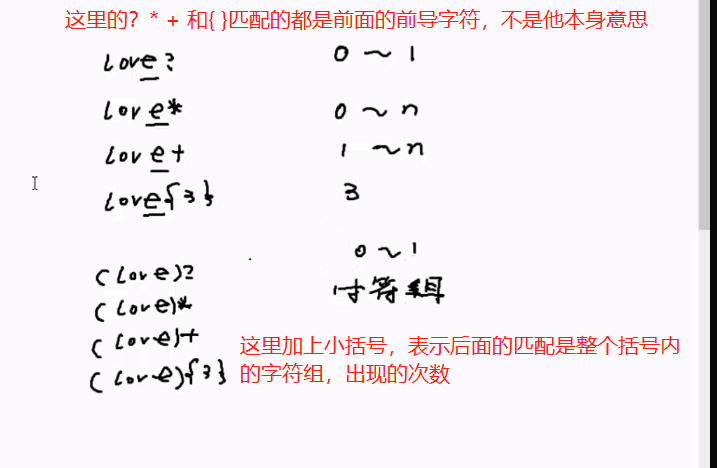 这里的？* + 和{ }匹配的都是前面的前导字符，不是他本身意思
love? 0 ~ 1
love* 0 ~ n
love+ 1 ~ n
love{3} 3
0 ~ 1
(love)? 字符组
(love)*
(love)+
(love){3}
这里加上小括号，表示后面的匹配是整个括号内
的字符组，出现的次数